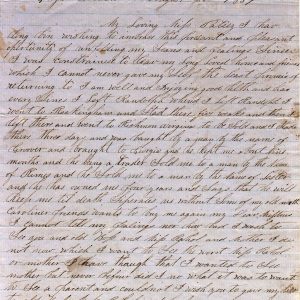 My Loving Miss Patsy I hav
long bin wishing to imbrace this presant and pleasant
opertunity of unfolding my Seans and fealings Since
I was constrained to leav my Long Loved home and friends
which I cannot never gave my Self the Least promis of
returning to. I am well and Injoying good helth and has
ever Since I Left Randolph. whend I left Randolf I
went to Rockingham and Stad there five weaks and then I
left there and went to Richmon virgina to be Sold and I Stade
there three days and was bought by a man by the name of
Groover and braught to Georgia and he kept me about Nine
months and he being a trader Sold me to a man by the name
of Rimes and he Sold me to a man by the name of Lester
and he has owned me four years and Says that he will
keep me til death Siperates us without Some of my old north
Caroliner friends wants to buy me again. my Dear Mistress
I cannot tell my fealings nor how bad I wish to
See you and old Boss and Mss Rahol and Mother. I do
not now which I want to See the worst Miss Rahol
or mother I have thaugh that I wanted to See
mother but never befour did I no what it was to want
to See a parent and could not. I wish you to gave my